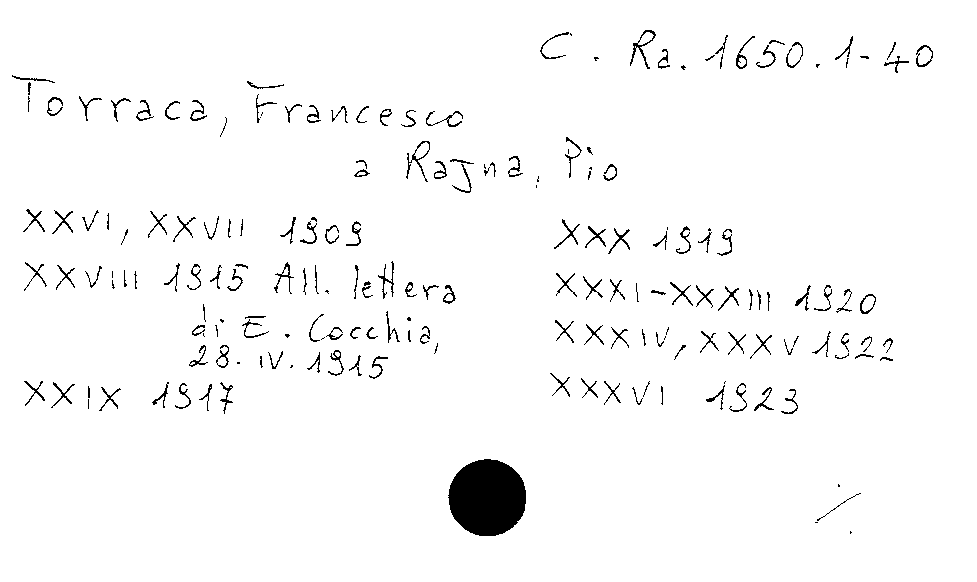 C. Ra. 1650.1-40
Torraca, Francesco
a Rajna, Pio
XXVI, XXVII 1909
XXVIII 1915 All. lettera
di E. Cocchia,
28. IV. 1915
XXIX 1917
XXX 1919
XXXI-XXXIII 1920
XXXIV, XXXV 1922
XXXVI 1923
./.